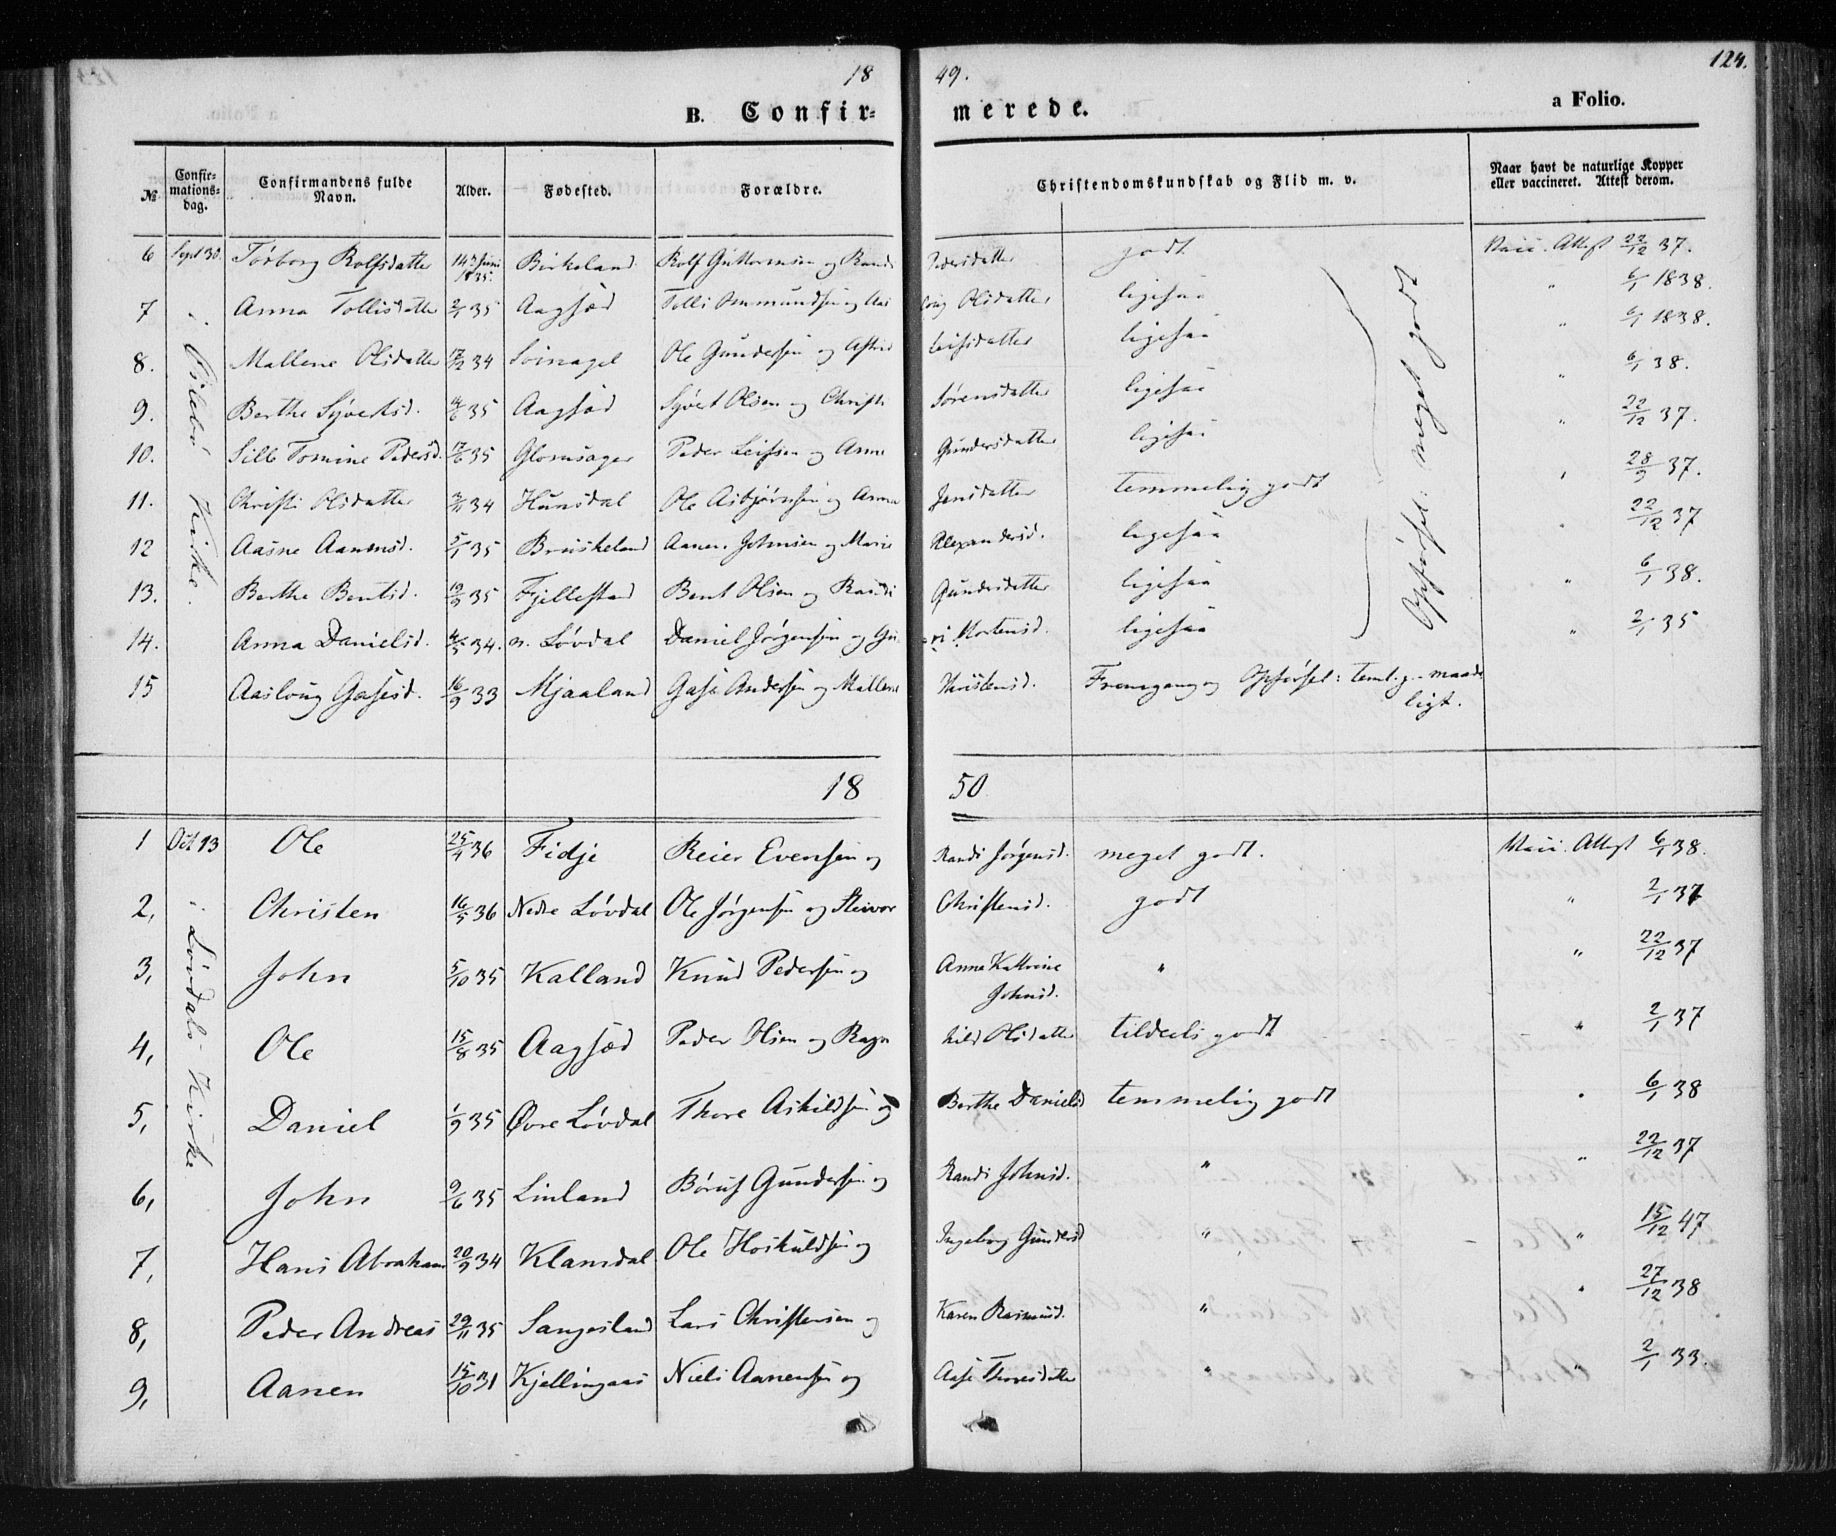 18 49. 124.
B. Confirmerede. a Folio.
№ Confirmationsdag. Confirmandens fulde Navn. Alder. Fødested. Forældre. Christendomskundskab og Flid m. v. Naar havt de naturlige Kopper eller vaccineret. Attest derom.
6 Sept 30. Tørborg Rolfsdatter 14 3 Juni 1835. Birkeland Rolf Guttormsen og Randi Pedersdatter godt Vacc. Attest 22/12 37.
7 Anna Tollisdatter 2/1 35 Aagsød Tolli Ommundsen og Aasloug Olsdatter ligesaa " 6/1 1838.
8. Mallene Olsdatter 17/12 34 Soinagel Ole Gundersen og Astrid Leifsdatter ligesaa " 6/1 1838.
9. Berthe Syvertsd. 4/6 35 Aagsød Syvert Olsen og Christi Sørensdatter ligesaa " 6/1 38.
10. Sille Tomine Pedersd. 17/6 35 Glomsager Peder Leifsen og Anne Gundersdatter ligesaa " 22/12 37.
11. Christi Olsdatter 34 Hunsdal Ole Asbjørnsen og Anna Jensdatter temmelig godt " 28/9 37.
12 Aasne Aanensd. 5/1 35 Bruskeland Aanen Johnsen og Marie Alexandersd. ligesaa " 22/12 37
13. Berthe Bentsd. 19/9 35 Fjellestad Bent Olsen og Randi Gundersdatter ligesaa " 6/1 38.
14. Anna Danielsd. 4/5 34. n. Løvdal Daniel Jørgensen og Guri Mortensd. ligesaa " 2/1 35
15 Aasloug Gasesd. 16/9 33 Mjaaland Gase Andersen og Mallene Christensd. Fremgang og Opførsel: teml. g. maadeligt.
i Øilebø Kirke.
Opførsel: meget godt
18 50
1 Oct 13 Ole 25/4 36 Fidje Reier Evensen og Randi Jørgensd. meget godt. Vacc. Attest 6/1 38.
2, Christen 16/5 36 Nedre Løvdal Ole Jørgensen og Steivor Christensd. godt " 2/1 37
3, John 5/10 35 Kalland Knud Pedersen og Anne Kathrine Johnsd. " " 22/12 37
4, Ole 15/8 35 Aagsød Peder Olsen og Ragnhild Olsdatter tildeels godt " 2/1 37
5, Daniel 1/9 35 Øvre Løvdal Thore Askildsen og Berthe Danielsd temmelig godt " 6/1 38
6, John 9/6 35 Linland Børuf Gundersen og Randi Johnsd. " " 22/12 37
7, Hans Abraham 20/9 34 Klandal Ole Hoskuldsen og Ingeborg Gundersd " " 15/12 47
8, Peder Andreas 29/11 35 Sangesland Lars Christensen og Karen Rasmusd. " " 27/12 38
9, Aanen 15/10 31 Kjellingaas Niels Aanensen og Aase Thoresdatter " " 2/1 33.
i Løvdals Kirke